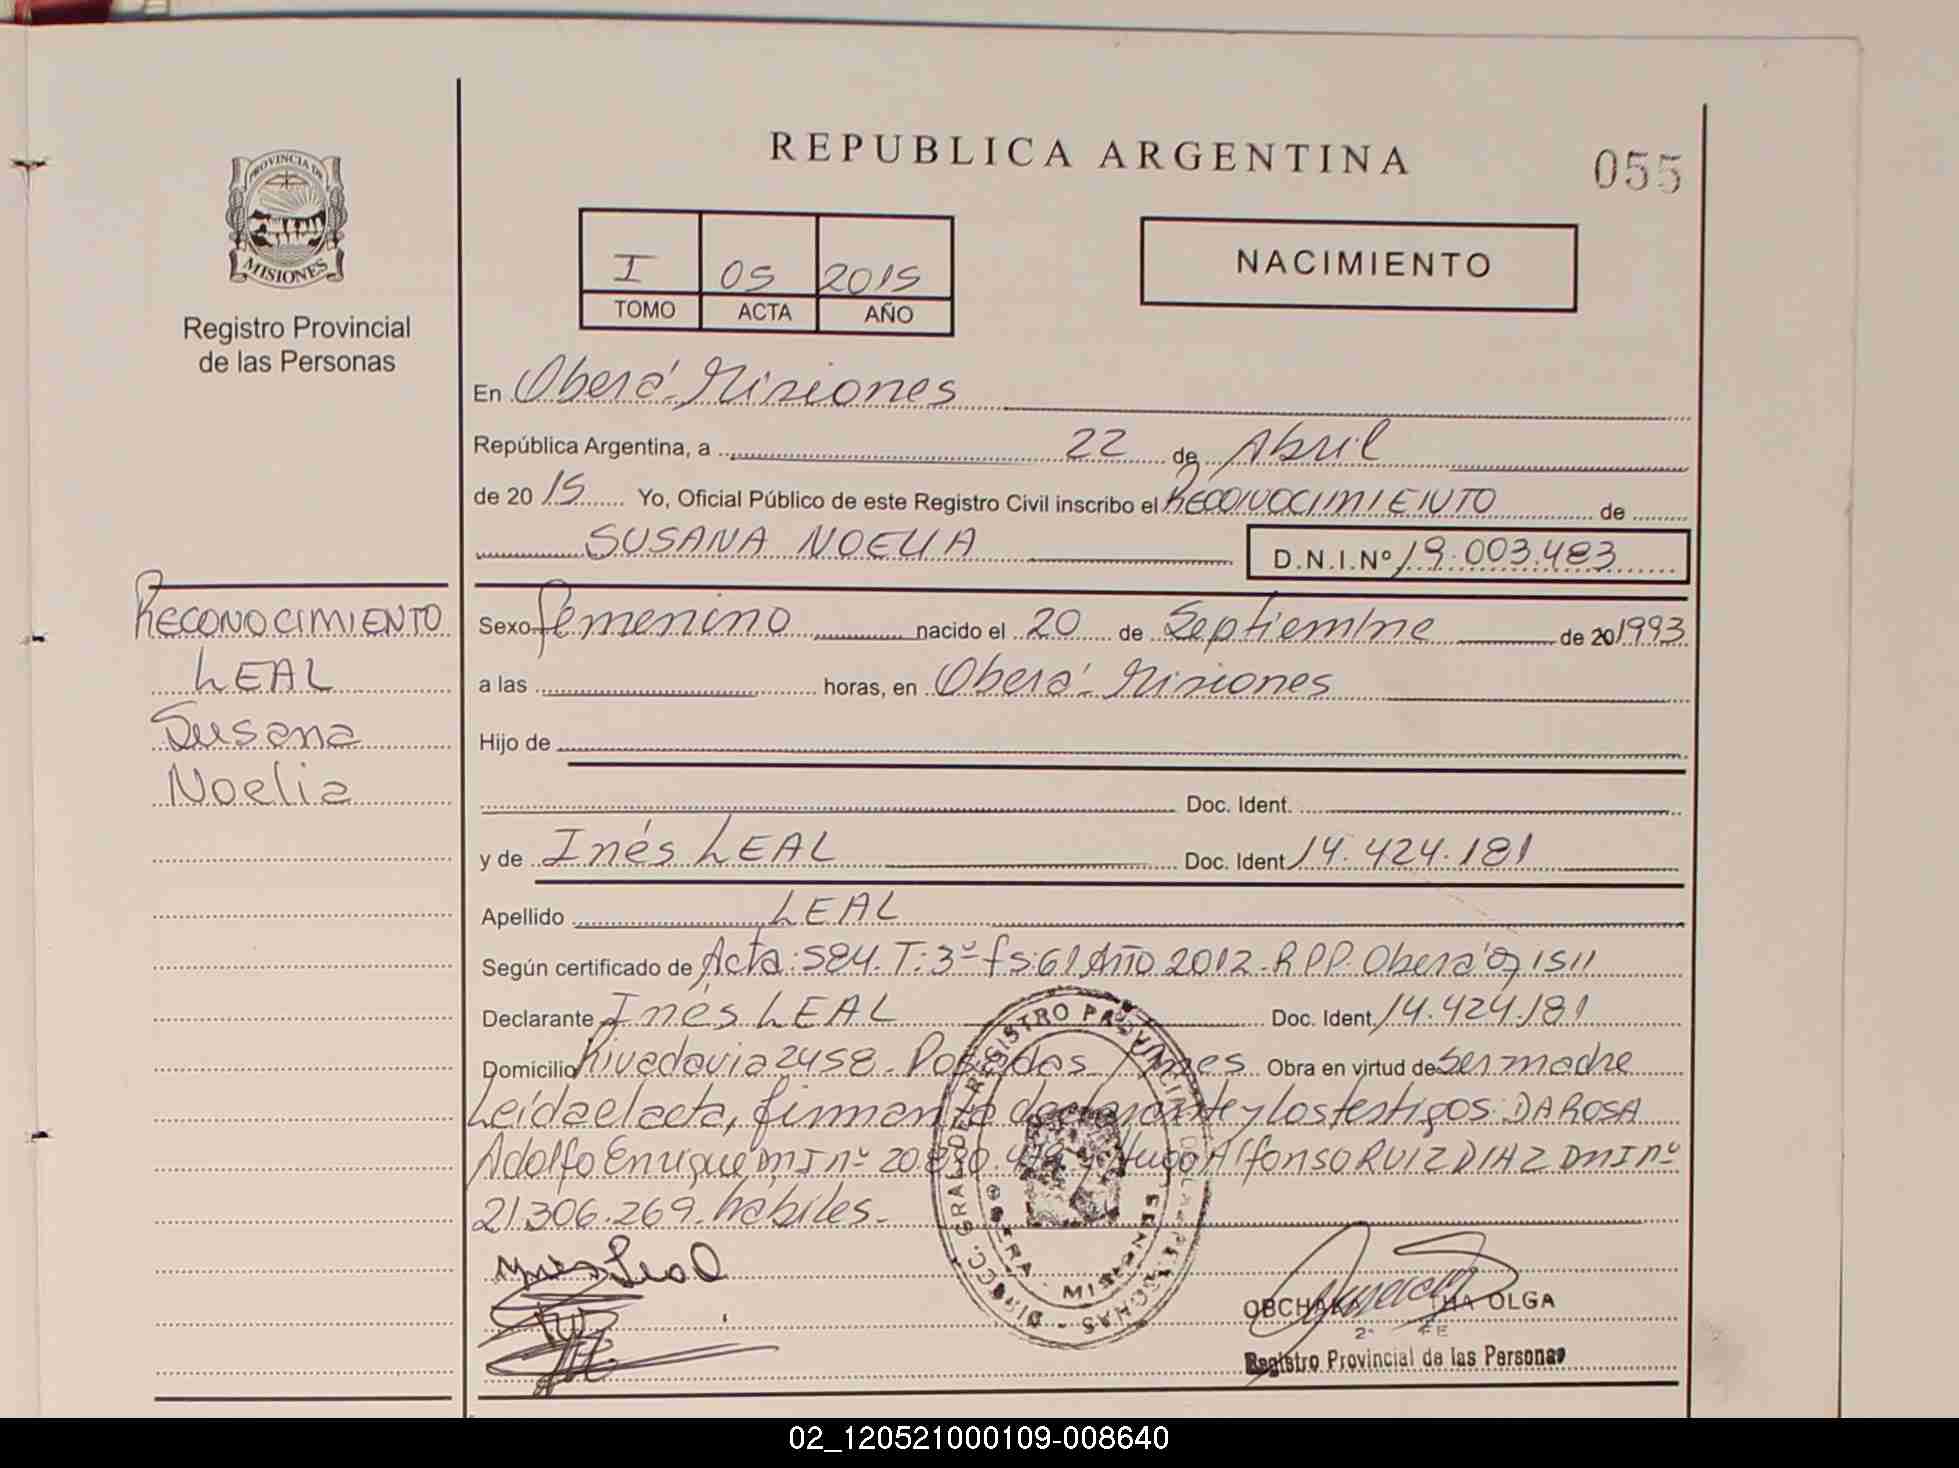 REPUBLICA ARGENTINA
055
PROVINCIA DE
MISIONES
Registro Provincial
de las Personas
I 05 2015
TOMO ACTA AÑO
NACIMIENTO
En Oberá - Misiones
República Argentina, a 22 de Abril
de 20 15 Yo, Oficial Público de este Registro Civil inscribo el RECONOCIMIENTO de
SUSANA NOELIA D.N.I.Nº 19.003.483
RECONOCIMIENTO
LEAL
Susana
Noelia
Sexo femenino nacido el 20 de Septiembre de 20 1993
a las horas, en Oberá - Misiones
Hijo de
Doc. Ident.
y de Inés LEAL Doc. Ident 14.424.181
Apellido LEAL
Según certificado de Acta: 584. T: 3º fs: 61 Año 2012 - RPP. Oberá 1511
Declarante Inés LEAL Doc. Ident 14.424.181
Domicilio Rivadavia 2458 - Posadas Mnes Obra en virtud de ser madre
Leída el acta, firman la declarante y los testigos: DA ROSA
Adolfo Enrique DNI nº 20.830. Hugo Alfonso RUIZ DIAZ DNI nº
21.306.269. hábiles.
Ynes Leal
DIRECC. GRAL. DEL REGISTRO PROVINCIAL DE LAS PERSONAS -
MISIONES
OLGA
Registro Provincial de las Personas
02_120521000109-008640